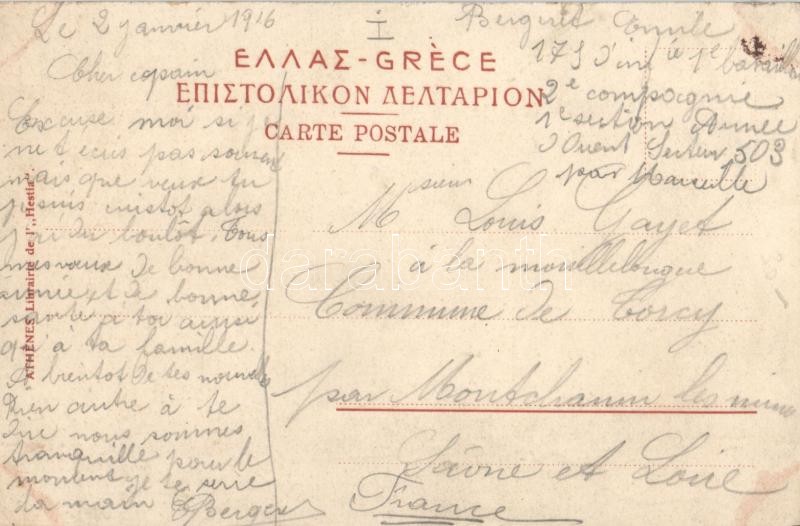 Le 2 janvier 1916
I
Berguet Emile
175 d'inie 1e bataillon
2e compagnie
1e section Armée
d'Orient Secteur 503
par Marseille
ΕΛΛΑΣ - GRÈCE
ΕΠΙΣΤΟΛΙΚΟΝ ΔΕΛΤΑΡΙΟΝ
CARTE POSTALE
Cher copain
Excuse moi si je
ne t ecris pas souvent
mais que veux tu
je suis cuistot alors
j'ai du boulot. Tous
mes vœux de bonne
année et de bonne
santé à toi ainsi
qu'à ta famille.
A bientot de tes nouvelles
Rien autre à te
dire nous sommes
tranquille pour le
moment je te serre
la main
Msieur Louis Gayet
à la
Commune de Torcy
par Montchanin les mines
Saône et Loire
France
ATHÈNES Librairie de l'„Hestia"
darabanth